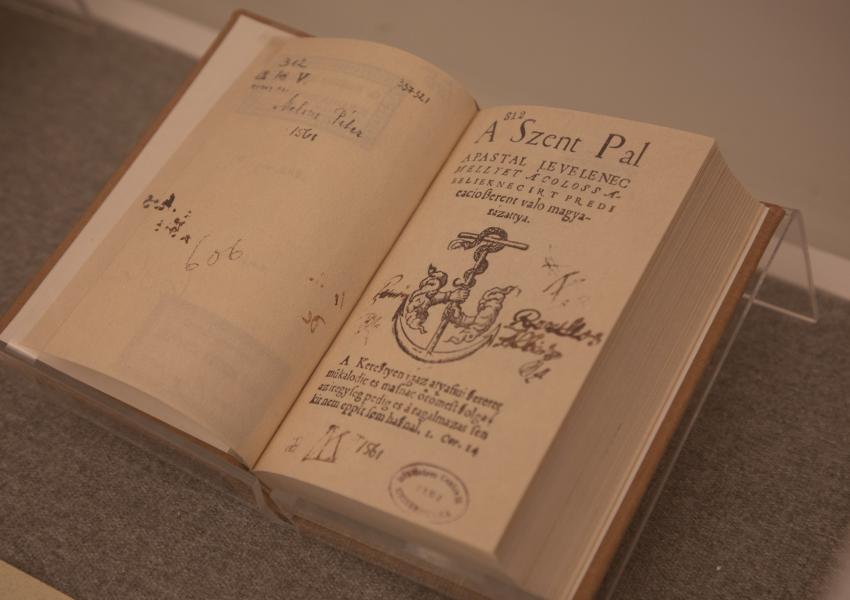 312
a M V
357321
Melius Péter
1561
606
812
A Szent Pal
APASTAL LEVELENEC
MELLYET A COLOSSA-
BELIEKNEC IRT PREDI
cacio ſerent valo magya-
razattya.
A Kereſtyen igaz atyafiui ſeretet
mûkalodic es maſnac ôrômeſt ſolgal
az iregyſeg pedig es a ragalmazas ſen
kit nem eppit ſem haſnal. 1. Cor. 14
1561